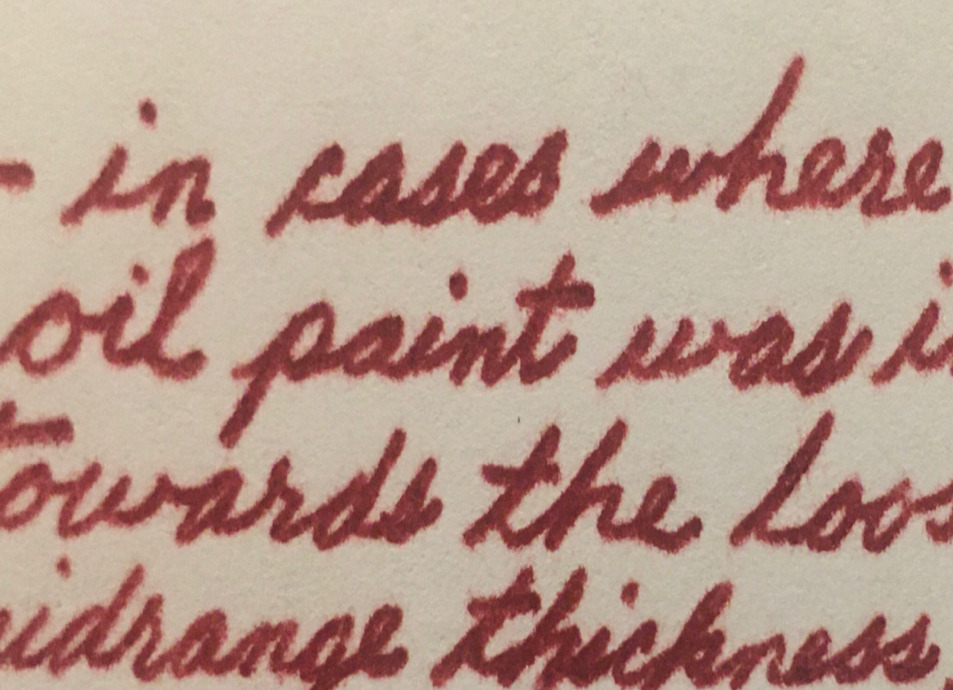 - in cases where
oil paint was i
towards the loos
idrange thickness,